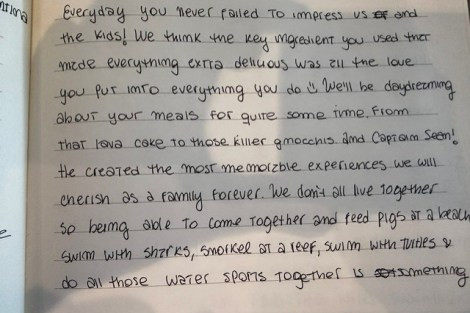 Everyday you never failed to impress us and
the kids! We think the key ingredient you used that
made everything extra delicious was all the love
you put into everything you do We'll be daydreaming
about your meals for quite some time. From
that lava cake to those killer gnocchis. And Captain Sean!
He created the most memorable experiences we will
cherish as a family forever. We don't all live together
so being able to come together and feed pigs at a beach
swim with sharks, snorkel at a reef, swim with turtles &
do all those water sports together is something